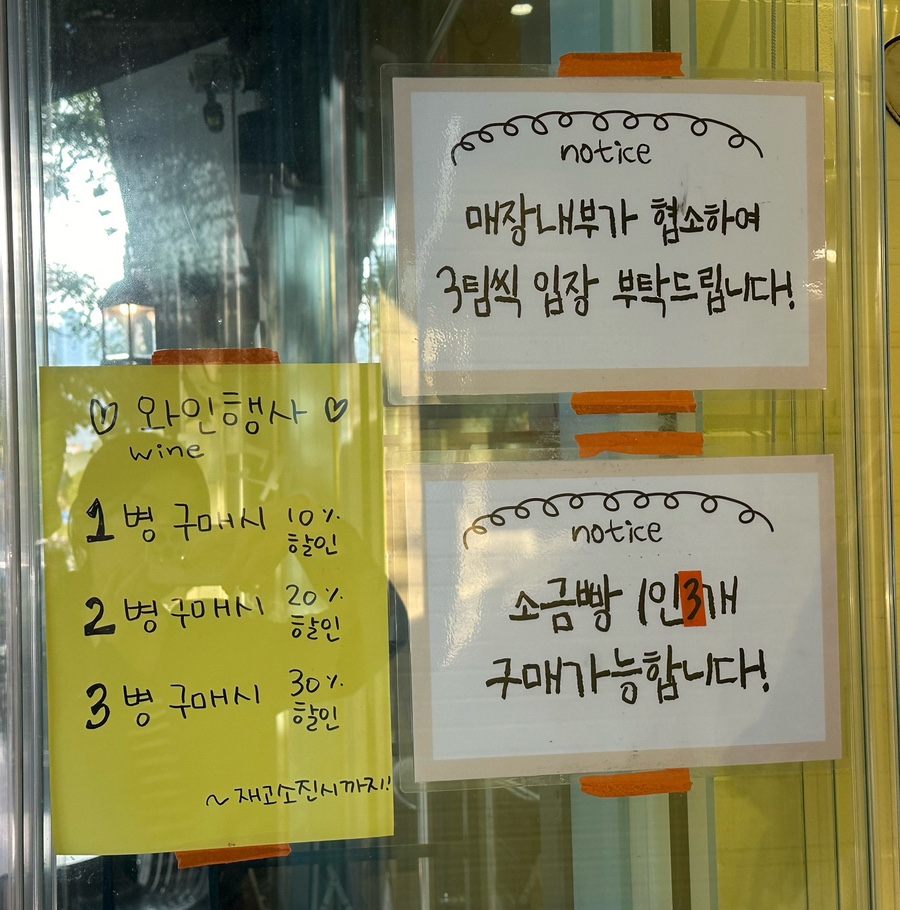 notice
매장내부가 협소하여
3팀씩 입장 부탁드립니다!
notice
소금빵 1인3개
구매가능합니다!
와인행사
wine
1병 구매시 10% 할인
2병 구매시 20% 할인
3병 구매시 30% 할인
~재고소진시까지!